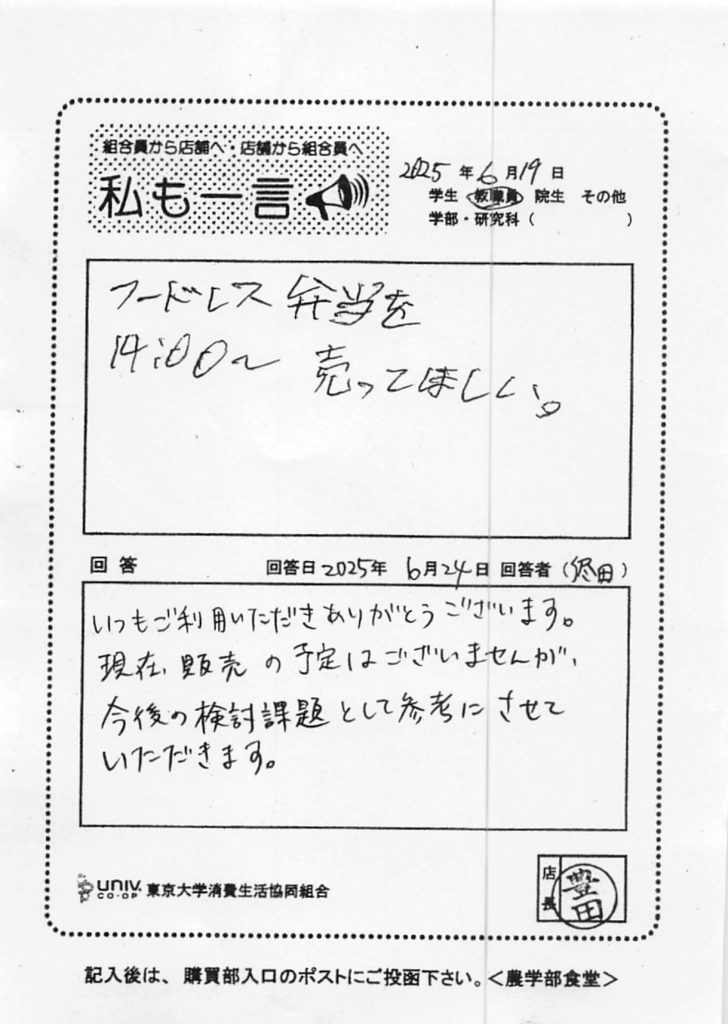 組合員から店舗へ・店舗から組合員へ
私も一言
2025年6月19日
学生 教職員 院生 その他
学部・研究科（ ）
フードレス弁当を
14:00〜 売ってほしい。
回答 回答日2025年 6月24日 回答者（ 田）
いつもご利用いただきありがとうございます。
現在、販売の予定はございませんが、
今後の検討課題として参考にさせて
いただきます。
UNIV. CO-OP 東京大学消費生活協同組合
店長 豊田
記入後は、購買部入口のポストにご投函下さい。＜農学部食堂＞